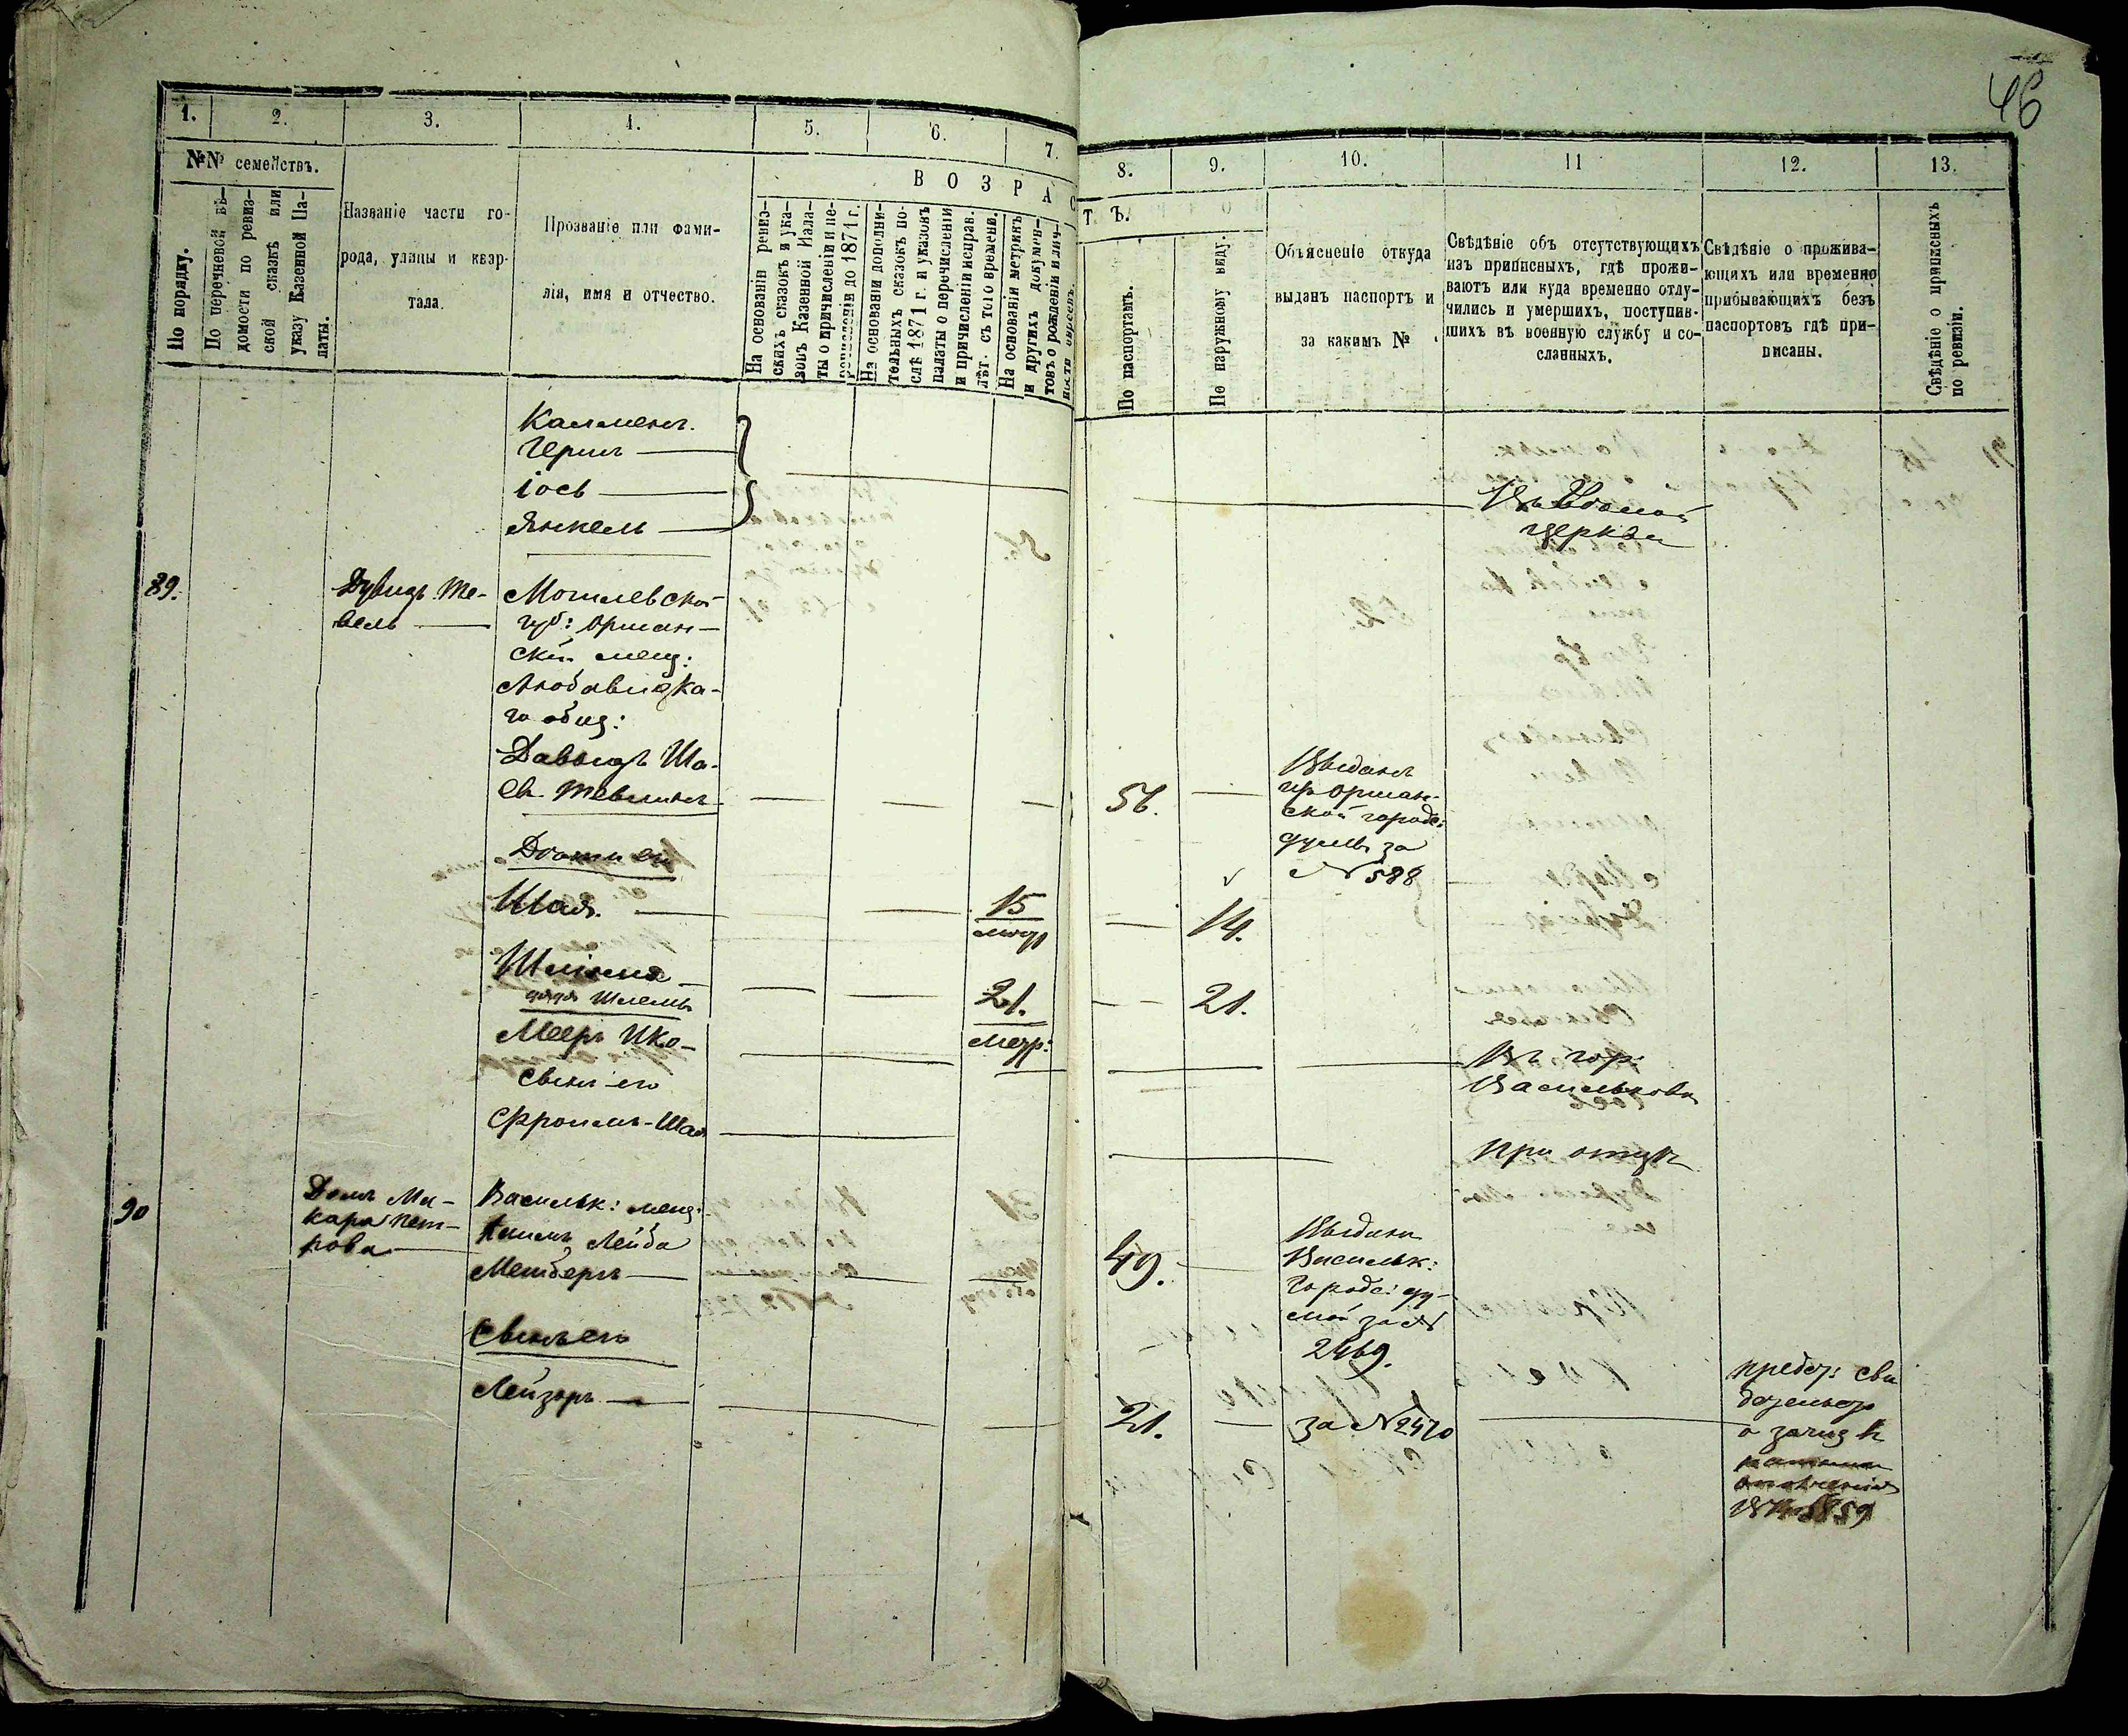 46
1.
2.
3.
4.
5.
6.
7.
8.
9.
10.
11
12.
13.
№№ семействъ.
По порядку.
По перечневой вѣ-
домости по ревиз-
ской сказкѣ или
указу Казенной Па-
латы.
Названіе части го-
рода, улицы и квар-
тала.
Прозваніе или фами-
лія, имя и отчество.
ВОЗРАСТЪ.
На основаніи ревиз-
скихъ сказокъ и ука-
зовъ Казенной Пала-
ты о причисленіи и пе-
речисленіи до 1871 г.
На основаніи дополни-
тельныхъ сказокъ по-
слѣ 1871 г. и указовъ
палаты о перечисленіи
и причисленіи исправ.
лѣт. съ того времени.
На основаніи метрикъ
и другихъ докумен-
товъ о рожденіи и лич-
По паспортамъ.
По наружному виду.
Объясненіе откуда
выданъ паспортъ и
за какимъ №
Свѣдѣніе объ отсутствующихъ
изъ приписныхъ, гдѣ прожи-
ваютъ или куда временно отлу-
чились и умершихъ, поступив-
шихъ въ военную службу и со-
сланныхъ.
Свѣдѣніе о прожива-
ющихъ или временно
прибывающихъ безъ
паспортовъ гдѣ при-
писаны.
Свѣдѣніе о приписныхъ
по ревизіи.
Калменъ.
Герш
Іось
Янкель
Въ Бѣлой
церкви
89.
Дувидъ Те-
вель
Могилевской
губ: Оршан-
скій мещ:
Любавицка-
го общ:
Давыдъ Ша-
ев. Тевелевъ
56.
Выданъ
из Оршан-
ской городс:
думы за
№ 588
Дѣти его
Шая.
15
14.
Шліома
или Шлемъ
21.
21.
Мееръ Ико-
Мезр:
Въ гор:
Васильковѣ
Сынъ его
Фроимъ-Шая
При отцѣ
90
Домъ Ма-
кара Пет-
рова
Васильк: мещ:
Лейба
49.
Выданъ
Васильк:
городс: ду-
мой за №
2469.
Сынъ его
Лейзоръ
21.
за № 2470
предст: сви